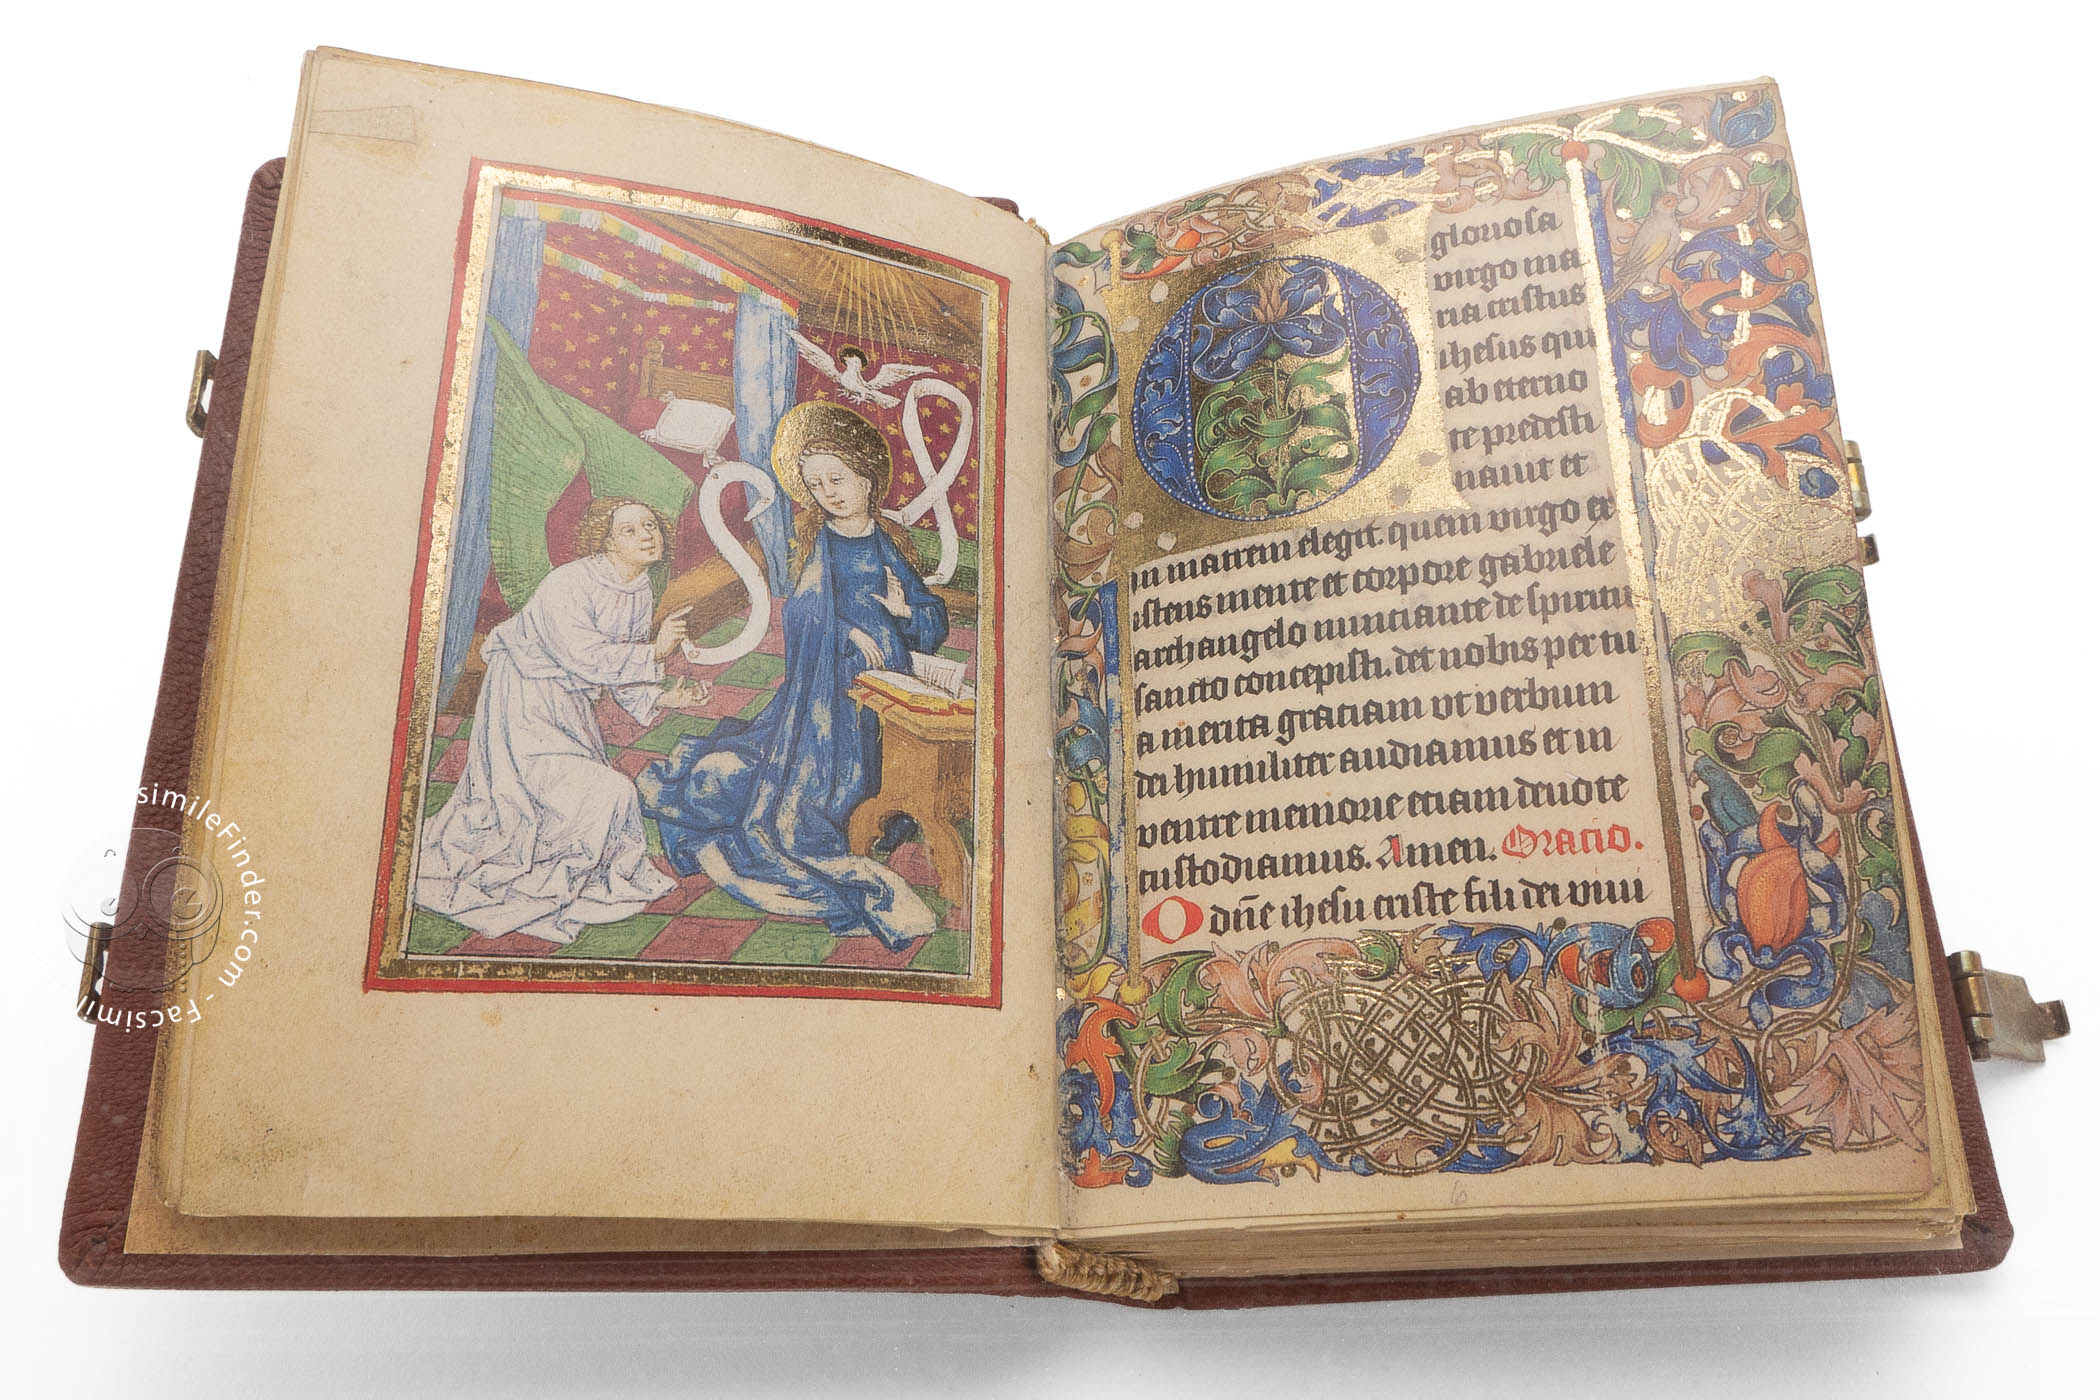 O gloriosa
virgo ma
ria cristus
ihesus qui
ab eterno
te predesti
nauit et
in matrem elegit. quem virgo ex
istens mente et corpore gabriele
archangelo nunciante de spiritu
sancto concepisti. det nobis per tu
a merita graciam vt verbum
dei humiliter audiamus et in
ventre memorie etiam deuote
custodiamus. Amen. Oracio.
O dn̄e ihesu criste fili dei viui
6
FacsimileFinder.com - Facsimil